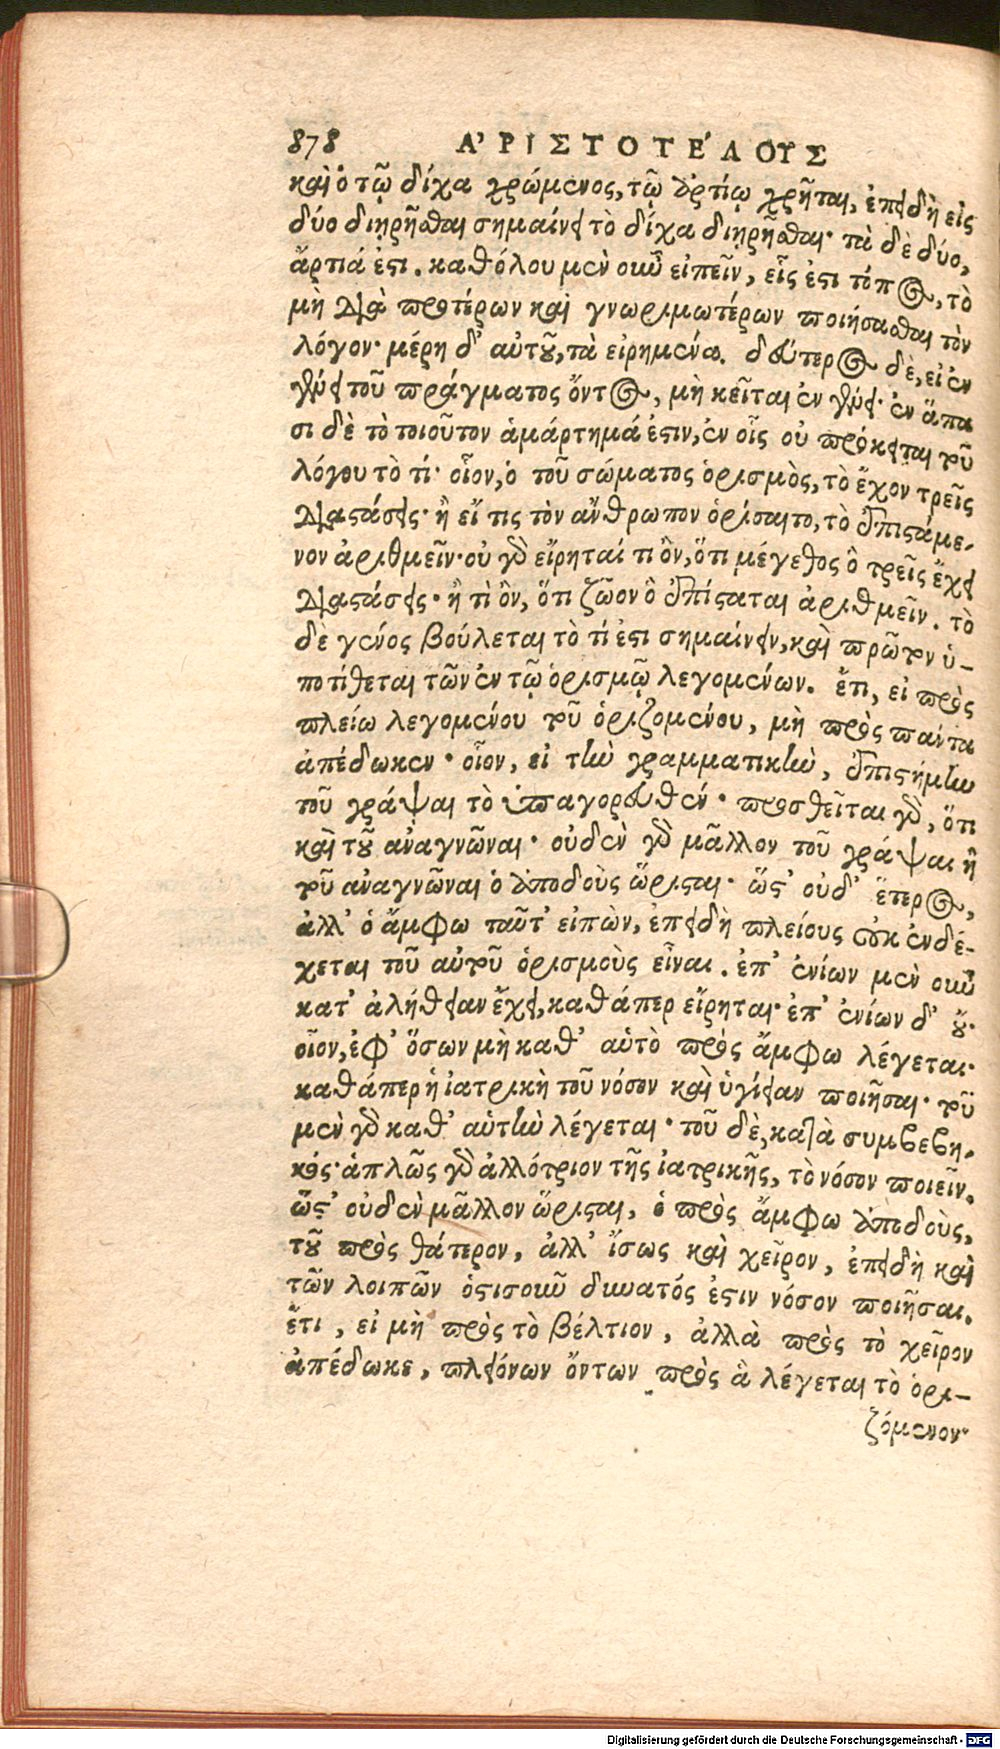 878 ΑʼΡΙΣΤΟΤΕΛΟΥΣ
καὶ ὁ τῷ δίχα χρώμενος, τῷ ἀρτίῳ χρῆται, ἐπειδὴ εἰς
δύο διῃρῆσθαι σημαίνει τὸ δίχα διῃρῆσθαι· τὰ δὲ δύο,
ἄρτιά ἐστι. καθόλου μὲν οὖν εἰπεῖν, εἷς ἐστι τόπος, τὸ
μὴ διὰ προτέρων καὶ γνωριμωτέρων ποιήσασθαι τὸν
λόγον· μέρη δ' αὐτοῦ, τὰ εἰρημένα. δεύτερος δὲ, εἰ ἐν
γένει τοῦ πράγματος ὄντος, μὴ κεῖται ἐν γένει· ἐν ἅπα
σι δὲ τὸ τοιοῦτον ἁμάρτημά ἐστιν, ἐν οἷς οὐ πρόκειται τοῦ
λόγου τὸ τί· οἷον, ὁ τοῦ σώματος ὁρισμὸς, τὸ ἔχον τρεῖς
διαστάσεις· ἢ εἴ τις τὸν ἄνθρωπον ὁρίσαιτο, τὸ ἐπιστάμε-
νον ἀριθμεῖν· οὐ γὰρ εἴρηται τί ὂν, ὅτι μέγεθος ὃ τρεῖς ἔχει
διαστάσεις· ἢ τὶ ὂν, ὅτι ζῶον ὃ ἐπίσταται ἀριθμεῖν. τὸ
δὲ γένος βούλεται τὸ τί ἐστι σημαίνειν, καὶ πρῶτον ὑ-
ποτίθεται τῶν ἐν τῷ ὁρισμῷ λεγομένων. ἔτι, εἰ πρὸς
πλείω λεγομένου τοῦ ὁριζομένου, μὴ πρὸς πάντα
ἀπέδωκεν· οἷον, εἰ τὴν γραμματικὴν, ἐπιστήμην
τοῦ γράψαι τὸ ὑπαγορευθέν· προσθεῖται γὰρ, ὅτι
καὶ τοῦ ἀναγνῶναι· οὐδὲν γὰρ μᾶλλον τοῦ γράψαι ἢ
τοῦ ἀναγνῶναι ὁ ἀποδοὺς ὥρισται· ὥστ' οὐδ' ἕτερος,
ἀλλ' ὁ ἄμφω ταῦτ' εἰπὼν, ἐπειδὴ πλείους οὐκ ἐνδέ-
χεται τοῦ αὐτοῦ ὁρισμοὺς εἶναι. ἐπ' ἐνίων μὲν οὖν
κατ' ἀλήθειαν ἔχει, καθάπερ εἴρηται· ἐπ' ἐνίων δ' οὔ·
οἷον, ἐφ' ὅσων μὴ καθ' αὑτὸ πρὸς ἄμφω λέγεται·
καθάπερ ἡ ἰατρικὴ τοῦ νόσον καὶ ὑγίειαν ποιῆσαι· τοῦ
μὲν γὰρ καθ' αὑτὴν λέγεται· τοῦ δὲ, κατὰ συμβεβη-
κός· ἁπλῶς γὰρ ἀλλότριον τῆς ἰατρικῆς, τὸ νόσον ποιεῖν.
ὥστ' οὐδὲν μᾶλλον ὥρισται, ὁ πρὸς ἄμφω ἀποδοὺς,
τοῦ πρὸς θάτερον, ἀλλ' ἴσως καὶ χεῖρον, ἐπειδὴ καὶ
τῶν λοιπῶν ὁστισοῦν δυνατός ἐστιν νόσον ποιῆσαι.
ἔτι, εἰ μὴ πρὸς τὸ βέλτιον, ἀλλὰ πρὸς τὸ χεῖρον
ἀπέδωκε, πλειόνων ὄντων πρὸς ἃ λέγεται τὸ ὁρι-
ζόμενον·
Digitalisierung gefördert durch die Deutsche Forschungsgemeinschaft - DFG